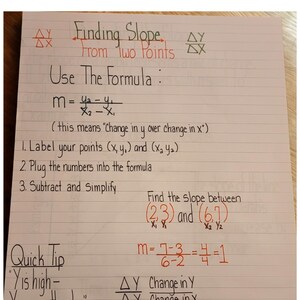 ΔY Finding Slope ΔY
ΔX From Two Points ΔX
Use The Formula:
m = y₂ - y₁
x₂ - x₁
(this means "change in y over change in x")
1. Label your points (x,y,) and (x₂ y₂)
2. Plug the numbers into the formula
3. Subtract and simplify
Find the slope between
(2,3) and (6,7)
x₁ y₁ x₂ y₂
m = 7-3 = 4 = 1
6-2 4
Quick Tip
"Y is high –
ΔY Change in Y
ΔX Change in X